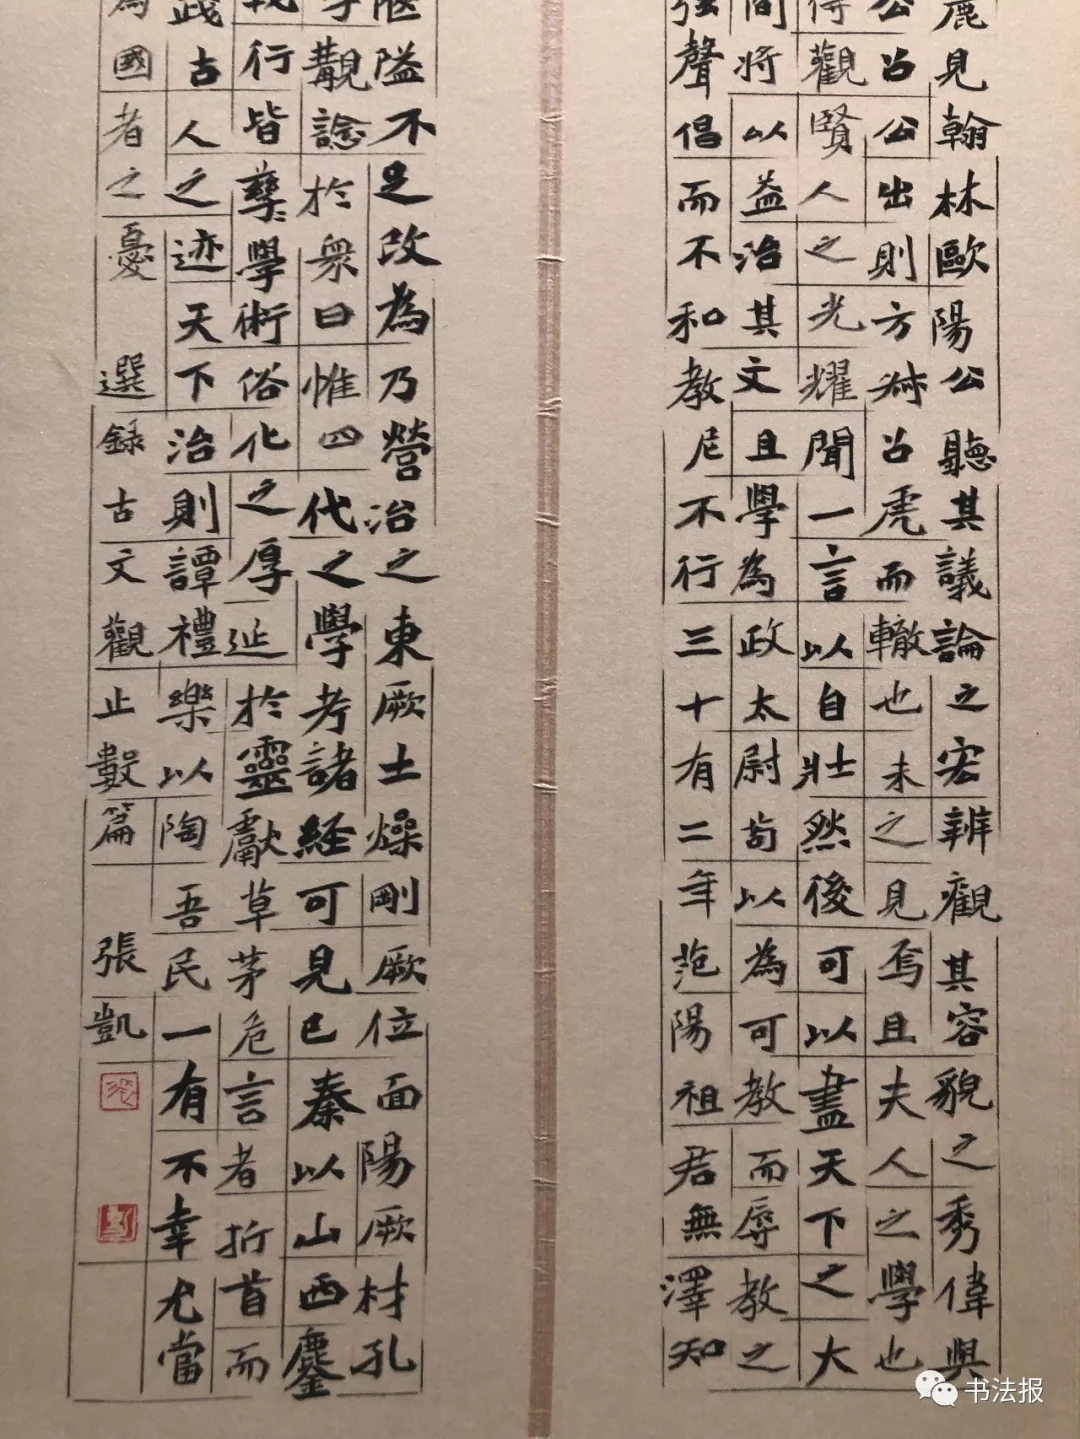 麗見翰林歐陽公聽其議論之宏辨觀其容貌之秀偉與
公召公出則方叔召虎而轍也未之見焉且夫人之學也
得觀賢人之光耀聞一言以自壯然後可以盡天下之大
間將以益治其文且學為政太尉苟以為可教而辱教之
弦聲倡而不和教尼不行三十有二年范陽祖君無澤知
隘不足改為乃營治之東厥土燥剛厥位面陽厥材孔
覯諗於眾曰惟四代之學考諸經可見已秦以山西鏖
執行皆孳學術俗化之厚延於靈獻草茅危言者折首而
踐古人之迹天下治則譚禮樂以陶吾民一有不幸尤當
為國者之憂 選錄古文觀止數篇 張凱
书法报